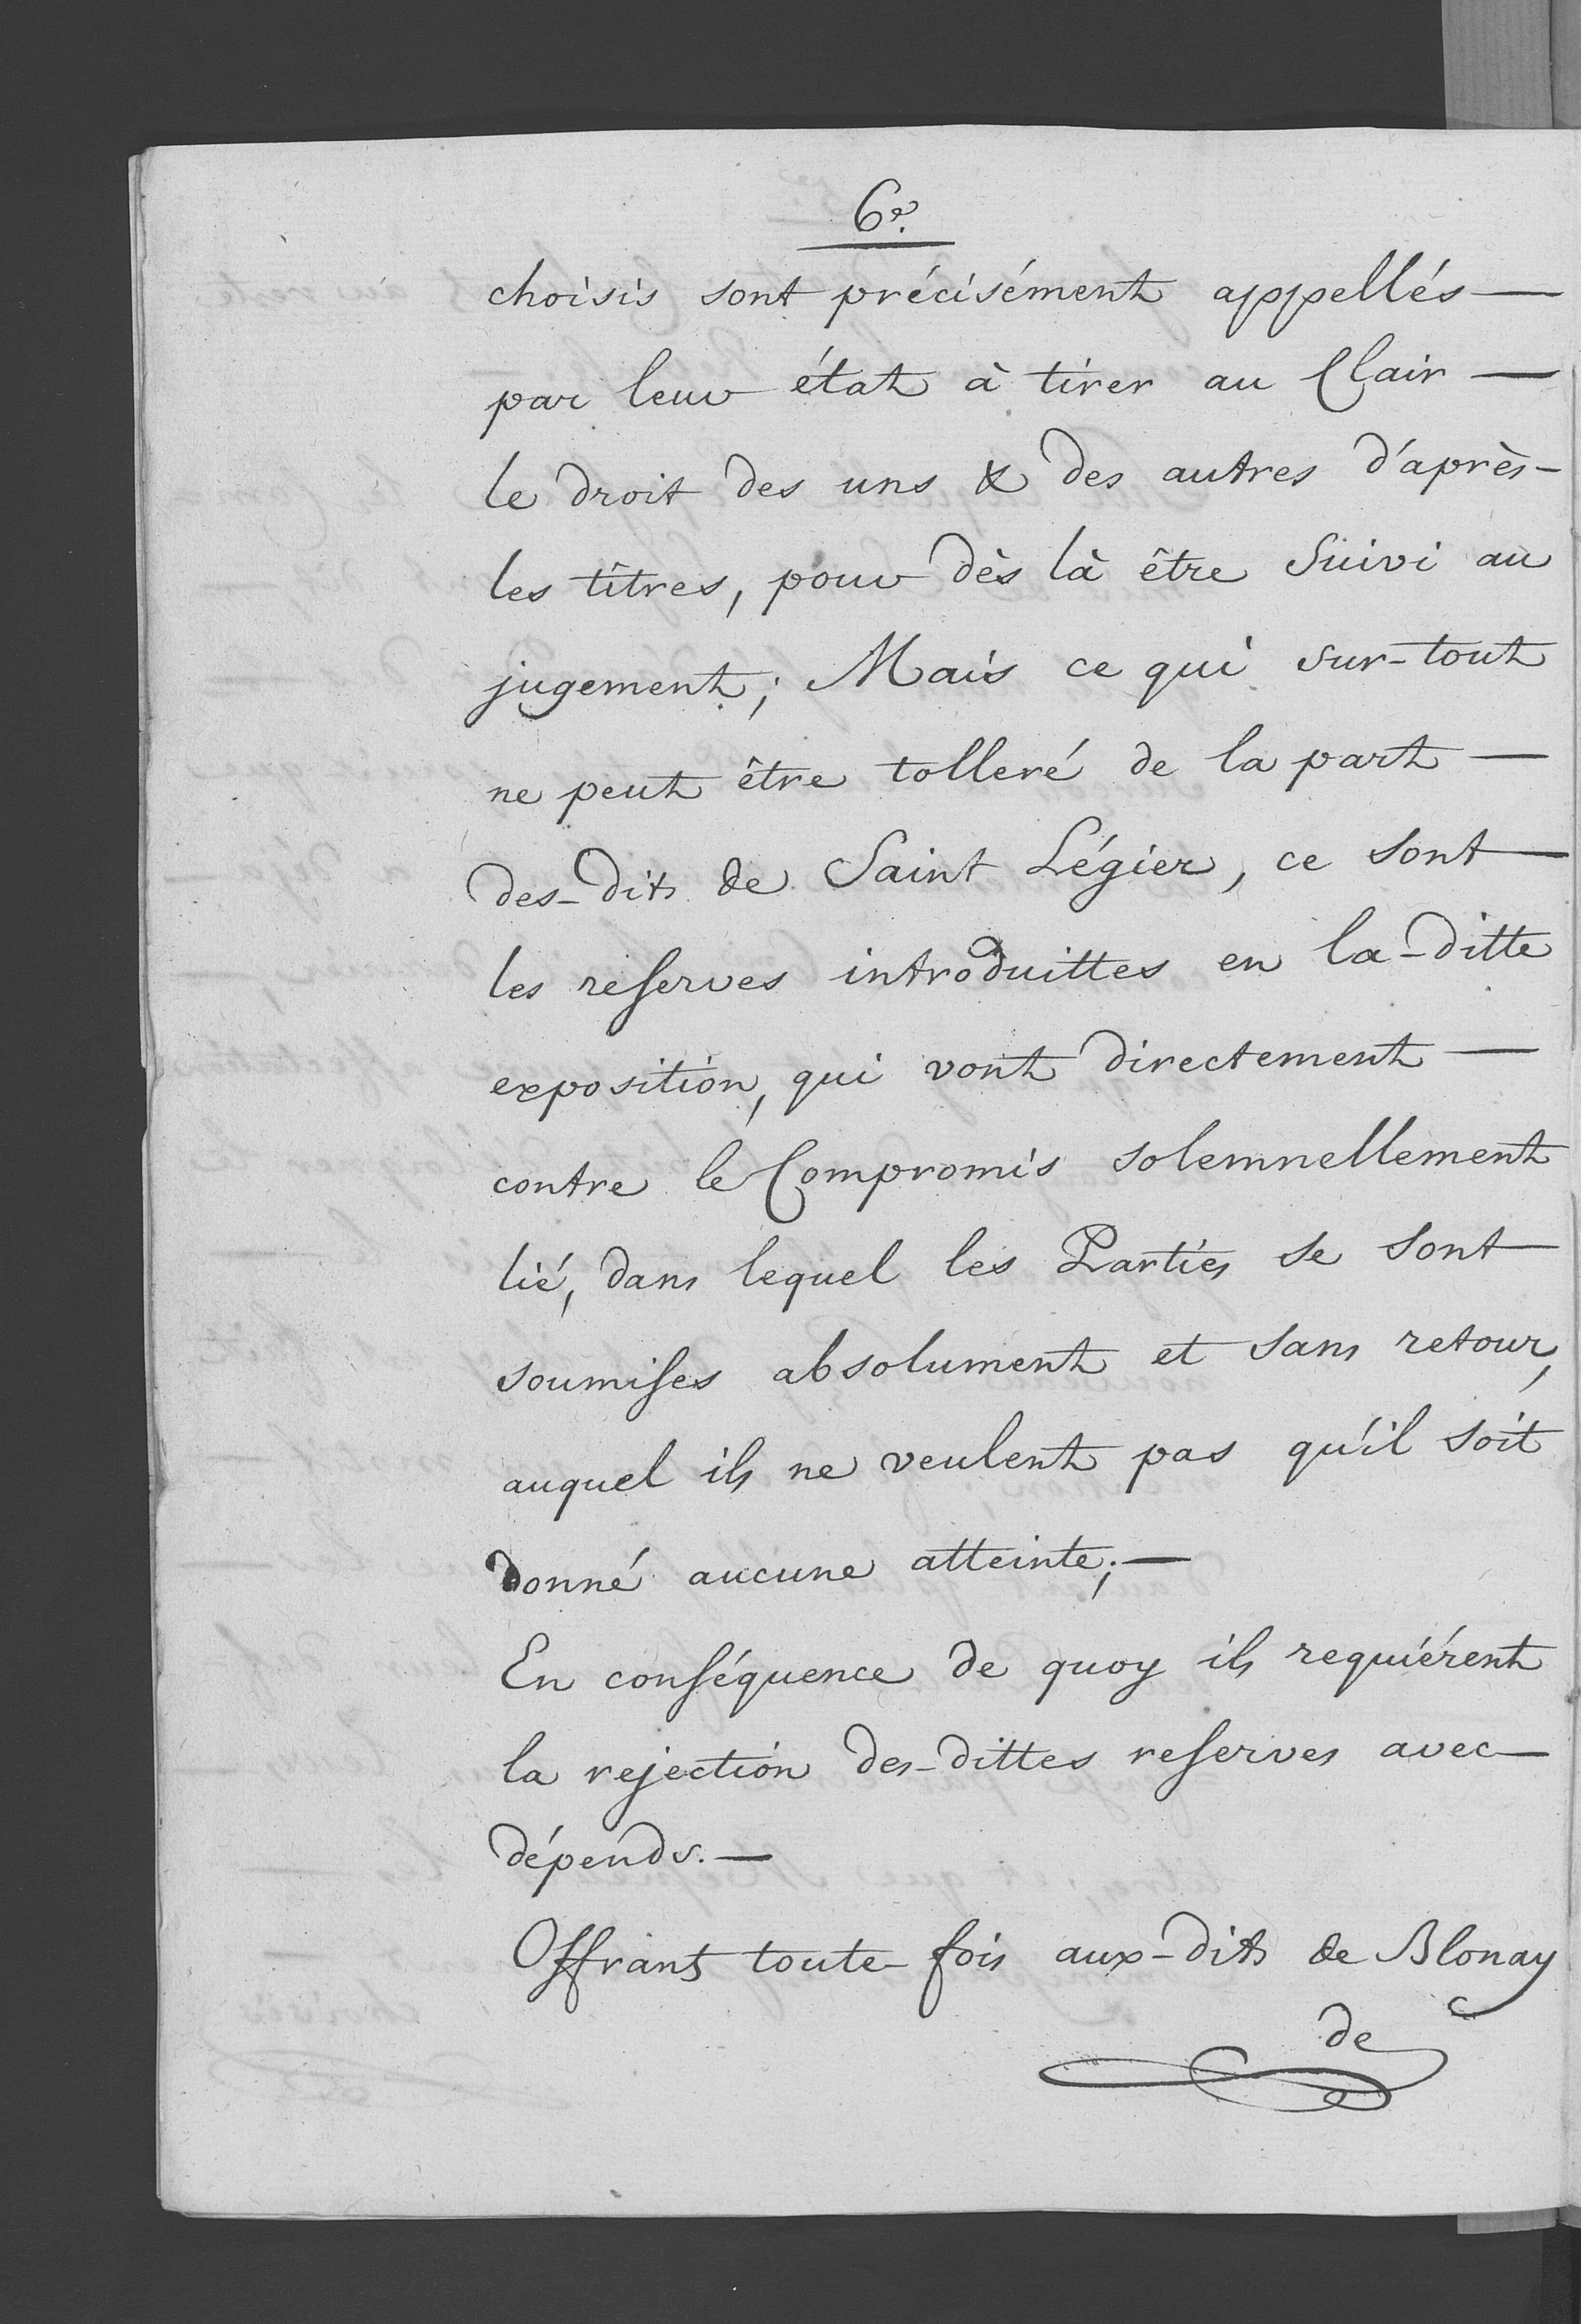 6e.
choisis sont précisément appellés —
par leur état à tirer au Clair —
le droit des uns & des autres d'après -
les tîtres, pour dès là être Suivi au
jugement; Mais ce qui sur-tout
ne peut être tolleré de la part —
des-dits de Saint Légier, ce sont —
les reserves introduittes en la-ditte
exposition, qui vont directement —
contre le Compromis solemnellement
lié, dans lequel les Parties se sont
soumises absolument et sans retour,
auquel ils ne veulent pas qu'il soit
donné aucune atteinte; —
En conséquence de quoy ils requiérent
la rejection des-dittes reserves avec —
dépends. —
Offrants toute-fois aux-dits de Blonay
de